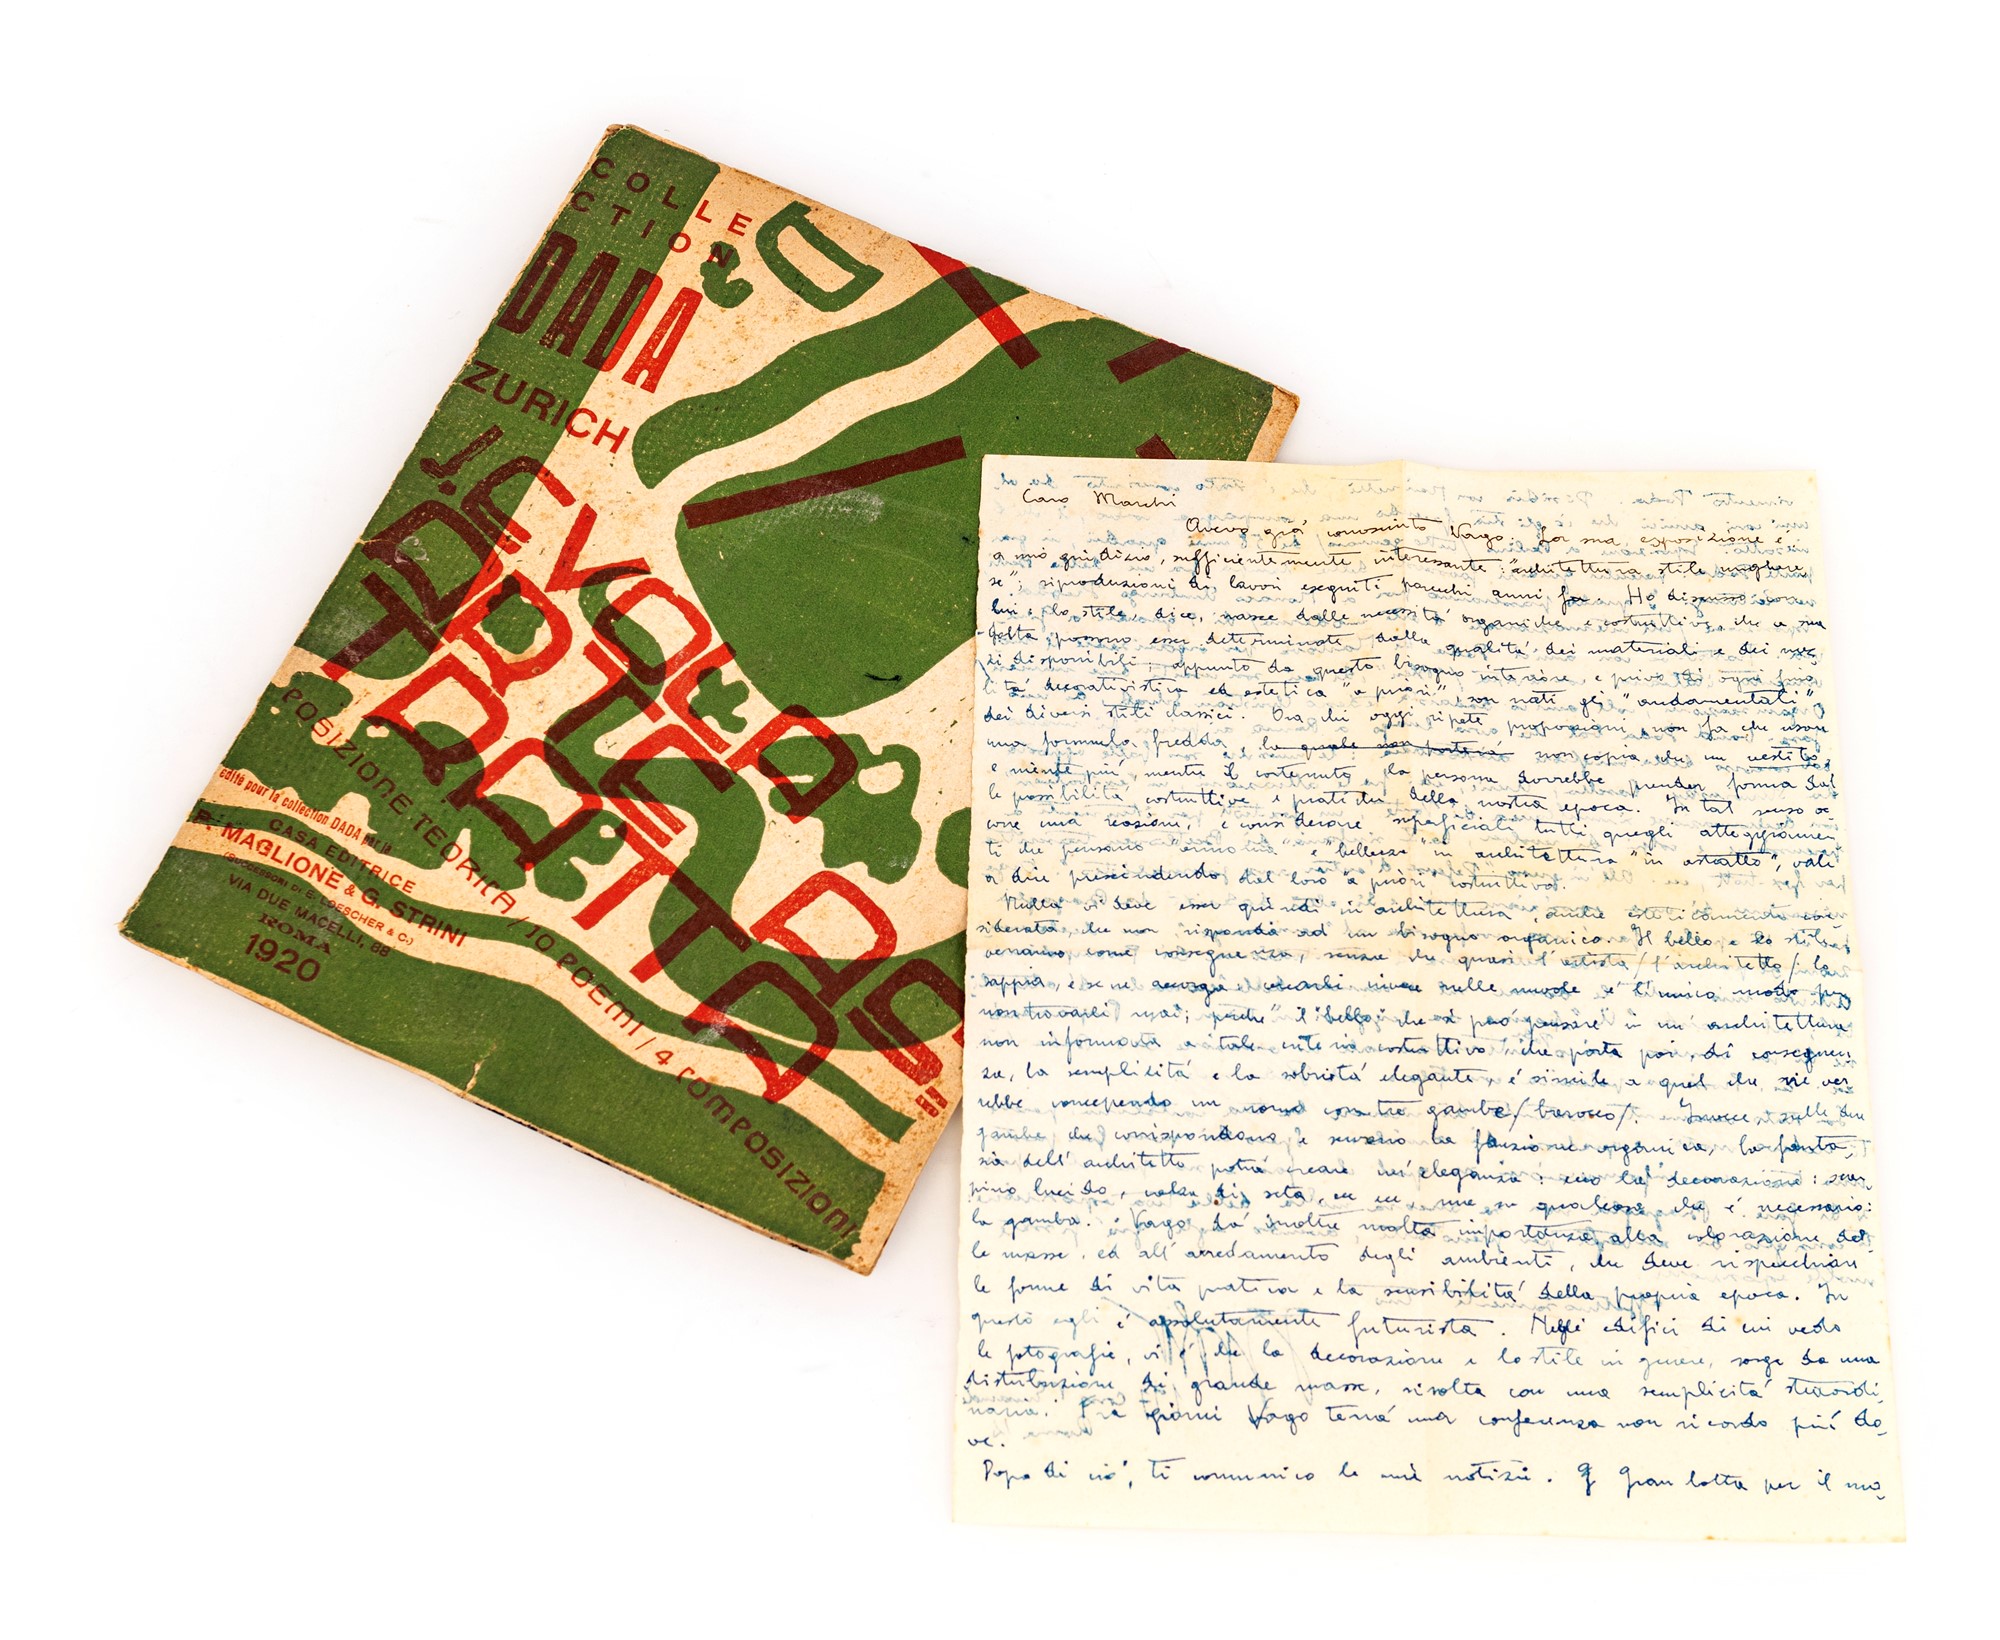 COLLE
CTION
DADA
ZURICH
J. EVOLA
ARTE
ASTRATTA
POSIZIONE TEORICA / 10 POEMI / 4 COMPOSIZIONI
édité pour la collection DADA par la
CASA EDITRICE
P. MAGLIONE & G. STRINI
(SUCCESSORI DI E. LOESCHER & C.)
VIA DUE MACELLI, 88
ROMA
1920
Caro Marchi
Avevo già conosciuto Vago. La sua esposizione è,
a mio giudizio, sufficientemente interessante: "architettura stile unghere
se"; riproduzioni di lavori eseguiti parecchi anni fa. Ho discusso con
lui: lo stile, dice, nasce dalle necessità organiche e costruttive, che a sua
volta possono esser determinate dalla qualità dei materiali e dei mez
zi disponibili; appunto da questo bisogno interiore, e privo di ogni
lità decorativistica ed estetica "a priori", son nati gli "andamentali"
dei diversi stili classici. Ora chi oggi ripete proporzioni, non fa che usare
una formula fredda, la quale non porterà non copia che un vestito,
e niente più, mentre il contenuto, la persona dovrebbe prender forma dal
le possibilità costruttive e pratiche della nostra epoca. In tal senso oc
corre una reazione, e considerare superficiali tutti quegli atteggiamen
ti che pensano "armonia" e "bellezza" in architettura "in astratto", vale
a dire prescindendo dal loro a priori costruttivo.
Nulla vi deve esser quindi in architettura, anche esteticamente con
siderata, che non risponda ad un bisogno organico. Il bello e lo stile
verranno come conseguenza, senza che quasi l'artista /l'architetto/ lo
sappia, e se ne accorga: cercarli invece nelle nuvole è l'unico modo per
non trovarli mai; perché "il bello" che si può pensare in un'architettura
non informata a tale criterio costruttivo, che porta poi, di conseguen
za, la semplicità e la sobrietà elegante, è simile a quel che ne ver
rebbe concependo un uomo con tre gambe /barocco/. Invece sulle due
gambe che corrispondono e servono la funzione organica, la fanta
sia dell'architetto potrà creare un'eleganza: ecco la decorazione: scar
pino lucido, calza di seta, ecc ecc, ma su qualcosa che è necessario:
la gamba. Vago dà inoltre molta importanza alla colorazione del
le masse, ed all'arredamento degli ambienti, che deve rispecchiare
le forme di vita pratica e la sensibilità della propria epoca. In
questo egli è assolutamente futurista. Negli edifici di cui vedo
le fotografie, vi è che la decorazione e lo stile in genere, sorge da una
distribuzione di grande masse, risolta con una semplicità straordi
naria. Fra giorni Vago terrà una conferenza non ricordo più do
ve.
Dopo di ciò, ti comunico le mie notizie. Gran lotta per il mo